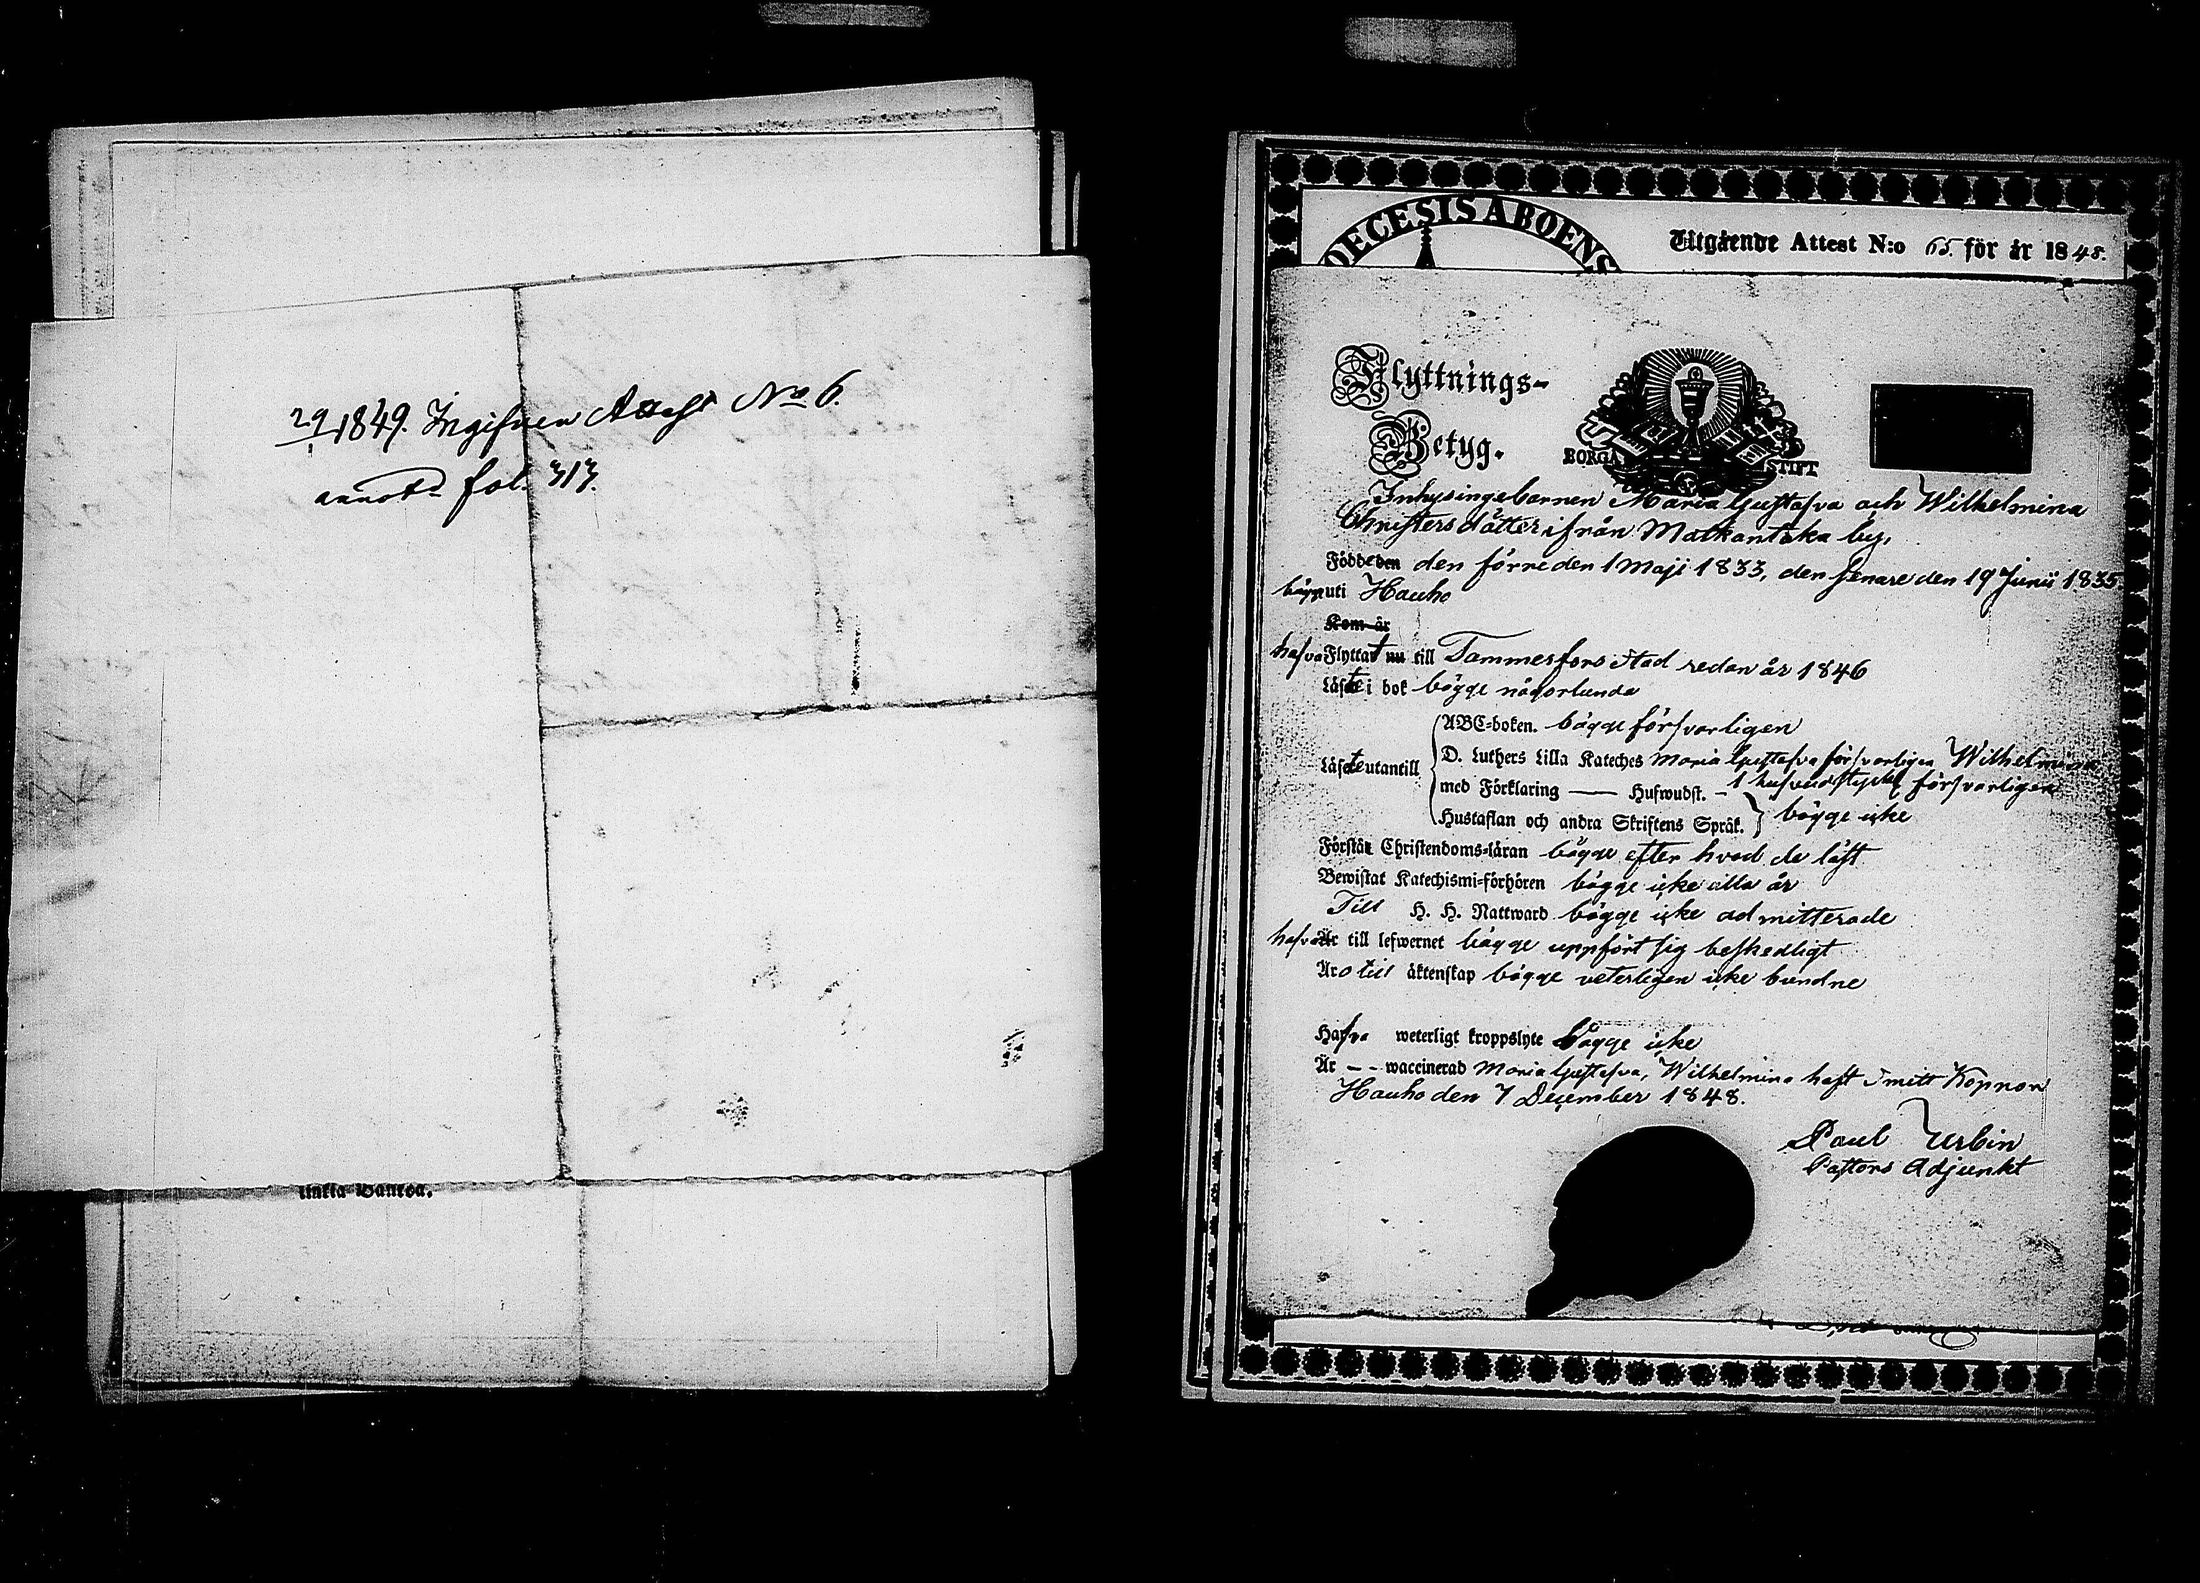 29/1 1849. Ingifven Attest No 6.
annot. fol. 313.
linkka Wantoa.
DECESIS ABOENS
Utgående Attest N:o 65. för år 1848.
Flyttnings-
Betyg.
BORGÅ STIFT
Inhysingebarnen Maria Gustafva och Wilhelmina
Christersdötter ifrån Matkantaka by,
Födde den den förre den 1 Maji 1833, den senare den 19 Junii 1835
bägge uti Hauho
Kom är
hafva Flyttat nu till Tammerfors stad redan år 1846
Läste i bok bägge någorlunda
ABC-boken. bägge försvarligen
Läste utantill D. Luthers Lilla Kateches Maria Gustafva försvarligen Wilhelmina
med Förklaring — Hufwudst. - 1 hufvudstycke försvarligen
Hustaflan och andra Skriftens Språk. } bägge icke
Förstår Christendoms-läran bägge efter hvad de läst
Bewistat Katechismi-förhören bägge icke alla år
Till H. H. Nattward bägge icke admitterade
hafva Är till lefwernet bägge uppfört sig beskedligt
Äro till äktenskap bägge veterligen icke bundne
Hafva weterligt kroppslyte bägge icke
Är - - waccinerad Maria Gustafva, Wilhelmina haft Smitt Kopnor
Hauho den 7 December 1848.
Paul Urbin
Pastors Adjunkt